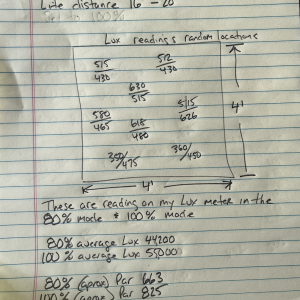 Lite distance 16 - 20
Set to 100%
Lux readings random locations
515/430 512/430
630/515
580/465 515/626
618/480
350/475 360/450
4'
4'
These are reading on my Lux meter in the
80% mode * 100% mode
80% average Lux 44200
100% average Lux 55,000
80% (aprox) Par 663
100% (aprox) Par 825